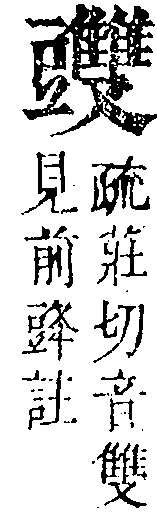 䜶
疏莊切音雙
見前註